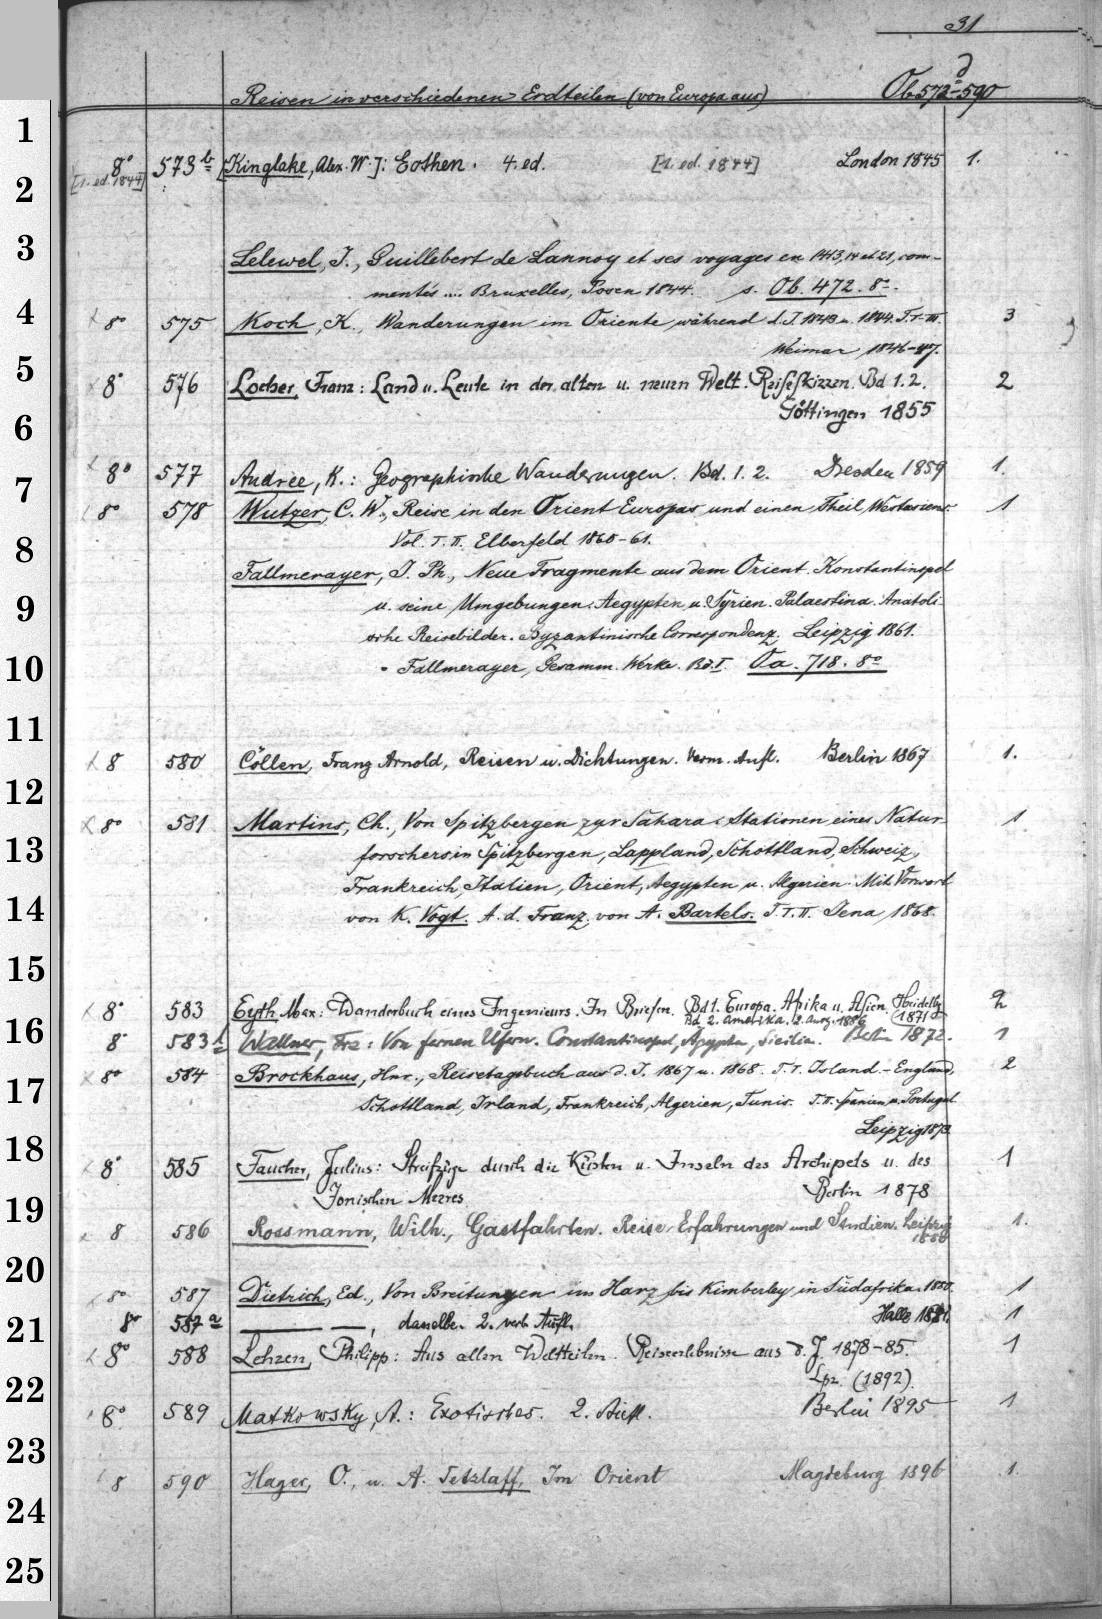 31
Reisen in verschiedenen Erdteilen (von Europa aus) Ob 572d-590
1
8° 573b [Kinglake, Alex. W.]: Eothen. 4. ed. [1. ed. 1844] London 1845 1.
[1. ed. 1844]
2
3
Lelewel, J., Guillebert de Lannoy et ses voyages en 1413, 14 et 21, com-
mentés .... Bruxelles, Posen 1844. s. Ob. 472. 8°.
4
8° 575 Koch, K., Wanderungen im Oriente während d. J. 1843 u. 1844. T. I-III. 3
Weimar 1846-47.
5
8° 576 Locher, Franz: Land u. Leute in der alten u. neuen Welt. Reiseskizzen. Bd 1. 2. 2
Göttingen 1855
6
8° 577 Andree, K.: Geographische Wanderungen. Bd. 1. 2. Dresden 1859 1.
7
8° 578 Wutzer, C. W., Reise in den Orient Europas und einen Theil Westasiens. 1
Vol. I. II. Elberfeld 1860-61.
8
Fallmerayer, J. Ph., Neue Fragmente aus dem Orient. Konstantinopel
u. seine Umgebungen. Aegypten u. Syrien. Palaestina. Anatoli-
9
sche Reisebilder. Byzantinische Correspondenz. Leipzig 1861.
Fallmerayer, Gesamm. Werke. Bd. I. Oa. 718. 8°
10
11
8 580 Cöllen, Franz Arnold, Reisen u. Dichtungen. Verm. Aufl. Berlin 1867 1.
12
8° 581 Martins, Ch., Von Spitzbergen zur Sahara. Stationen eines Natur-
forschers in Spitzbergen, Lappland, Schottland, Schweiz, 1
13
Frankreich, Italien, Orient, Aegypten u. Algerien. Mit Vorwort
von K. Vogt. A. d. Franz. von A. Bartels. T. I. II. Jena 1868.
14
15
8° 583 Eyth, Max: Wanderbuch eines Ingenieurs. In Briefen. Bd 1. Europa. Afrika u. Asien. Heidelbg 1871 2
Bd 2. Amerika. 2. Ausg. 1886
16
8° 583b Wallner, Frz: Von fernen Ufern. Constantinopel, Ägypten, Sicilien. Berlin 1872. 1
8° 584 Brockhaus, Hnr., Reisetagebuch aus d. J. 1867 u. 1868. T. I. Island - England, 2
17
Schottland, Irland, Frankreich, Algerien, Tunis. T. II. Spanien u. Portugal
Leipzig 1873
18
8° 585 Faucher, Julius: Streifzüge durch die Küsten u. Inseln des Archipels u. des 1
Jonischen Meeres Berlin 1878
19
8 586 Rossmann, Wilh., Gastfahrten. Reise-Erfahrungen und Studien. Leipzig 1880 1.
20
8° 587 Dietrich, Ed., Von Breitungen im Harz bis Kimberley in Südafrika. 1880. 1
8° 587a —— —, dasselbe. 2. verb. Aufl. Halle 1881. 1
21
8° 588 Lehzen, Philipp: Aus allen Weltteilen. Reiseerlebnisse aus d. J. 1878-85. 1
Lpz. (1892).
22
8° 589 Matkowsky, A.: Exotisches. 2. Aufl. Berlin 1895 1
23
8 590 Hager, O., u. A. Tetzlaff, Im Orient Magdeburg 1896 1.
24
25